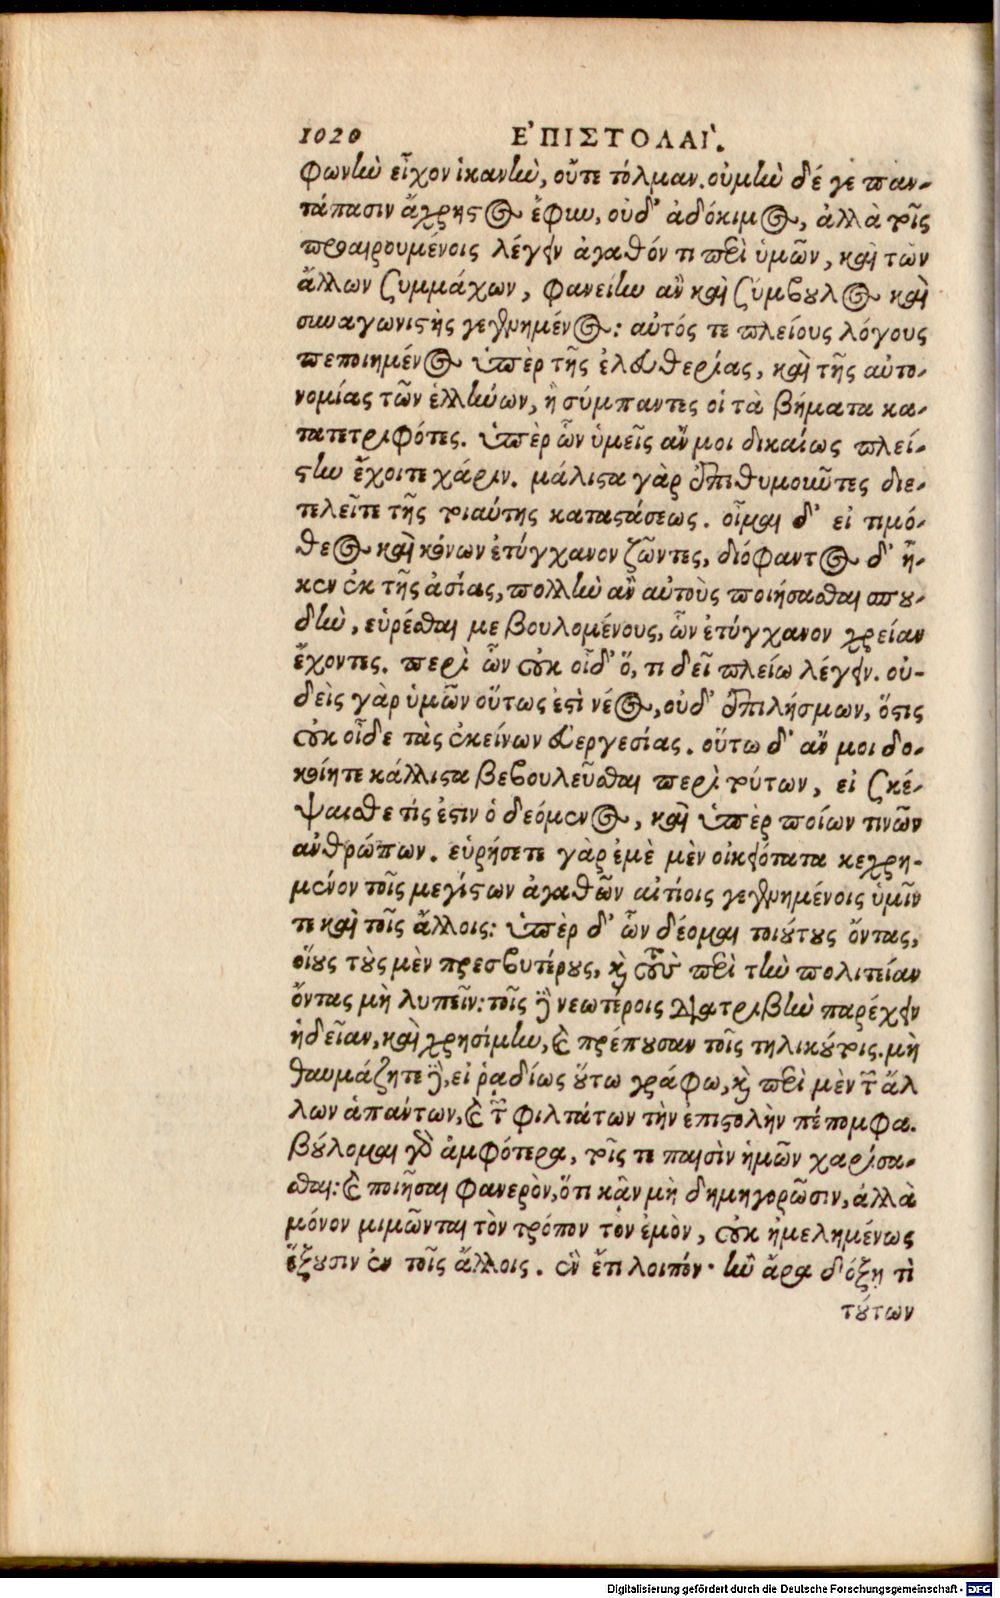 1020 ΕʼΠΙΣΤΟΛΑῚ.
φωνὴν εἶχον ἱκανὴν, οὔτε τόλμαν. οὐ μὴν δέ γε παν-
τάπασιν ἄχρηστος ἔφυν, οὐδ' ἀδόκιμος, ἀλλὰ τοῖς
προαιρουμένοις λέγειν ἀγαθόν τι περὶ ὑμῶν, καὶ τῶν
ἄλλων ζυμμάχων, φανείην ἂν καὶ ζύμβουλος καὶ
συναγωνιστὴς γεγενημένος: αὐτός τε πλείους λόγους
πεποιημένος ὑπὲρ τῆς ἐλευθερίας, καὶ τῆς αὐτο-
νομίας τῶν ἑλλήνων, ἢ σύμπαντες οἱ τὰ βήματα κα-
τατετριφότες. ὑπὲρ ὧν ὑμεῖς ἄν μοι δικαίως πλεί-
στην ἔχοιτε χάριν. μάλιστα γὰρ ἐπιθυμοῦντες διε-
τελεῖτε τῆς τοιαύτης καταστάσεως. οἶμαι δ' εἰ τιμό-
θεος καὶ κόνων ἐτύγχανον ζῶντες, διόφαντος δ' ἧ-
κεν ἐκ τῆς ἀσίας, πολλὴν ἂν αὐτοὺς ποιήσασθαι σπου-
δὴν, εὑρέσθαι με βουλομένους, ὧν ἐτύγχανον χρείαν
ἔχοντες. περὶ ὧν οὐκ οἶδ' ὅ, τι δεῖ πλείω λέγειν. οὐ-
δεὶς γὰρ ὑμῶν οὕτως ἐστὶ νέος, οὐδ' ἐπιλήσμων, ὅστις
οὐκ οἶδε τὰς ἐκείνων εὐεργεσίας. οὕτω δ' ἄν μοι δο-
κοίητε κάλλιστα βεβουλεῦσθαι περὶ τούτων, εἰ ζκέ-
ψαισθε τίς ἐστιν ὁ δεόμενος, καὶ ὑπὲρ ποίων τινῶν
ἀνθρώπων. εὑρήσετε γὰρ ἐμὲ μὲν οἰκειότατα κεχρη-
μένον τοῖς μεγίστων ἀγαθῶν αἰτίοις γεγενημένοις ὑμῖν
τε καὶ τοῖς ἄλλοις: ὑπὲρ δ' ὧν δέομαι τοιούτους ὄντας,
οἵους τοὺς μὲν πρεσβυτέρους, καὶ τοὺς περὶ τὴν πολιτείαν
ὄντας μὴ λυπεῖν: τοῖς δὲ νεωτέροις διατριβὴν παρέχειν
ἡδεῖαν, καὶ χρησίμην, καὶ πρέπουσαν τοῖς τηλικούτοις. μὴ
θαυμάζητε δὲ, εἰ ῥᾳδίως οὕτω γράφω, καὶ περὶ μὲν τῶν ἄλ
λων ἁπάντων, καὶ τῶν φιλτάτων τὴν ἐπιστολὴν πέπομφα.
βούλομαι γὰρ ἀμφότερα, τοῖς τε παισὶν ἡμῶν χαρίσα-
σθαι: καὶ ποιῆσαι φανερὸν, ὅτι κἂν μὴ δημηγορῶσιν, ἀλλὰ
μόνον μιμῶνται τὸν τρόπον τὸν ἐμὸν, οὐκ ἠμελημένως
ἕξουσιν ἐν τοῖς ἄλλοις. ἓν ἔτι λοιπόν· ἢν ἄρα δόξῃ τὶ
τούτων
Digitalisierung gefördert durch die Deutsche Forschungsgemeinschaft - DFG